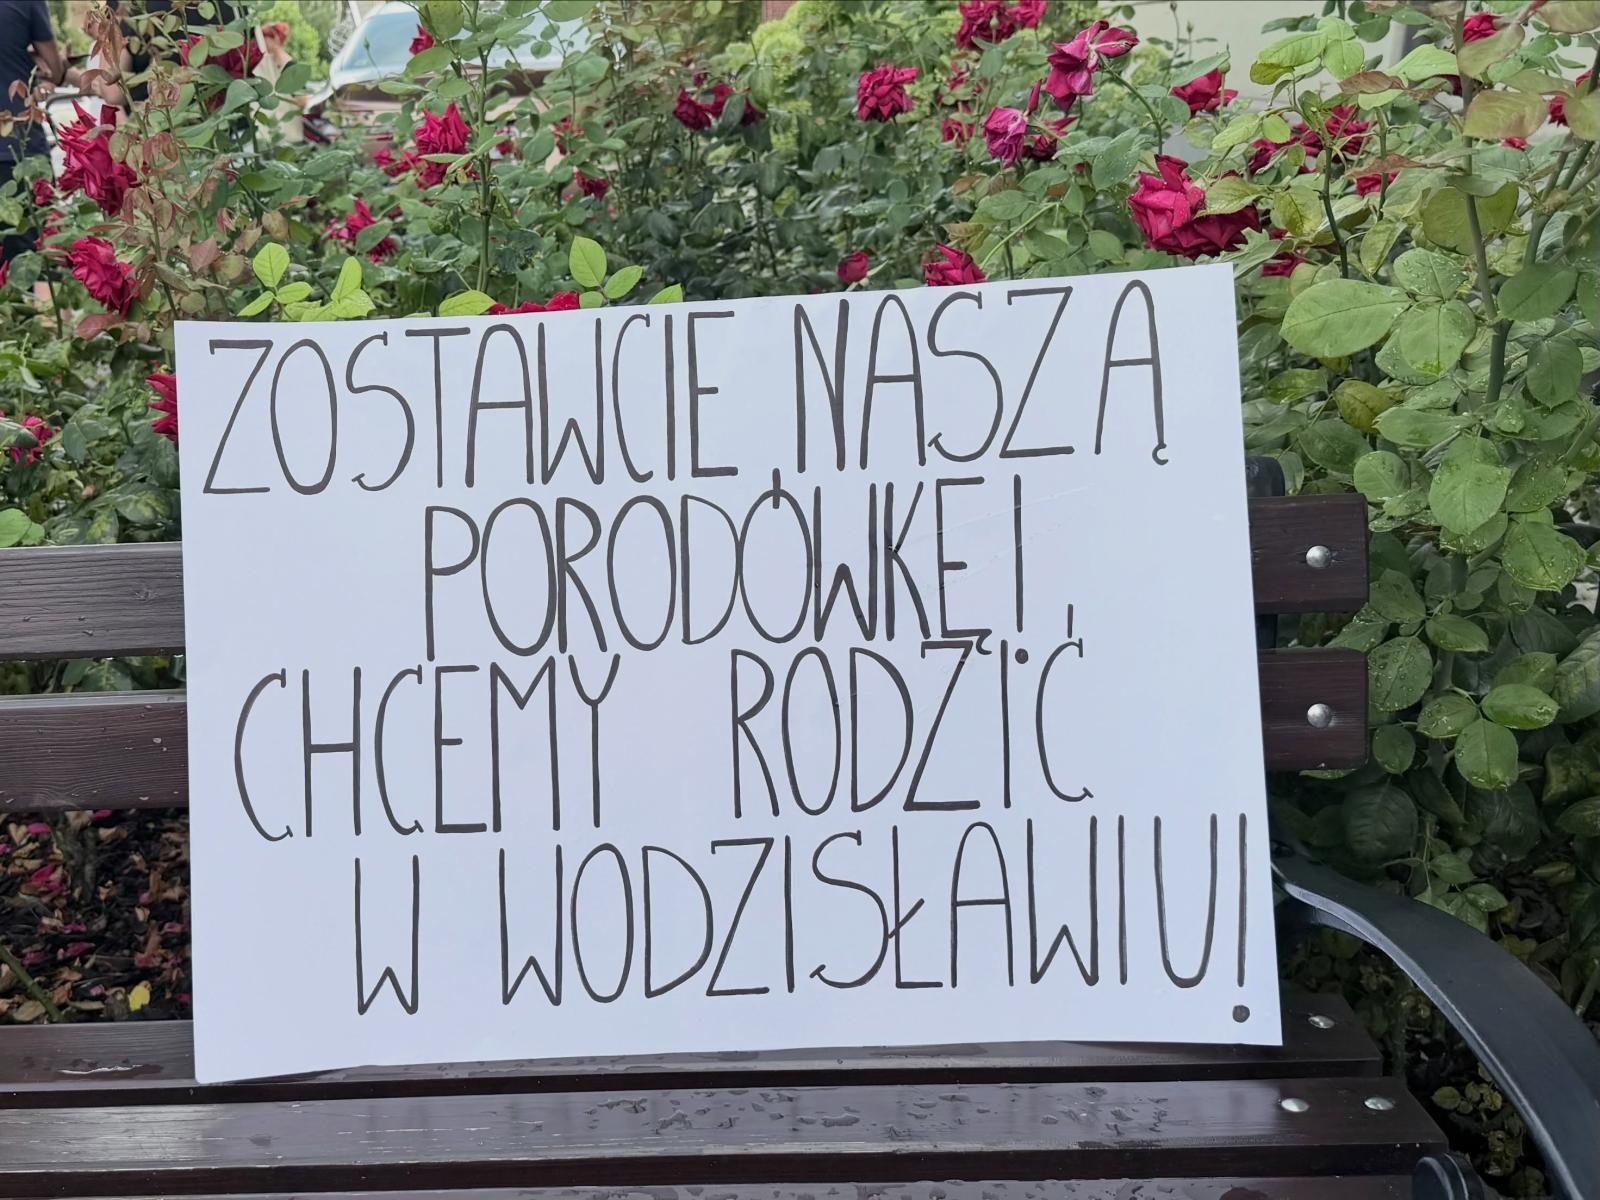 ZOSTAWCIE NASZĄ
PORODÓWKĘ!
CHCEMY RODZIĆ
W WODZISŁAWIU!